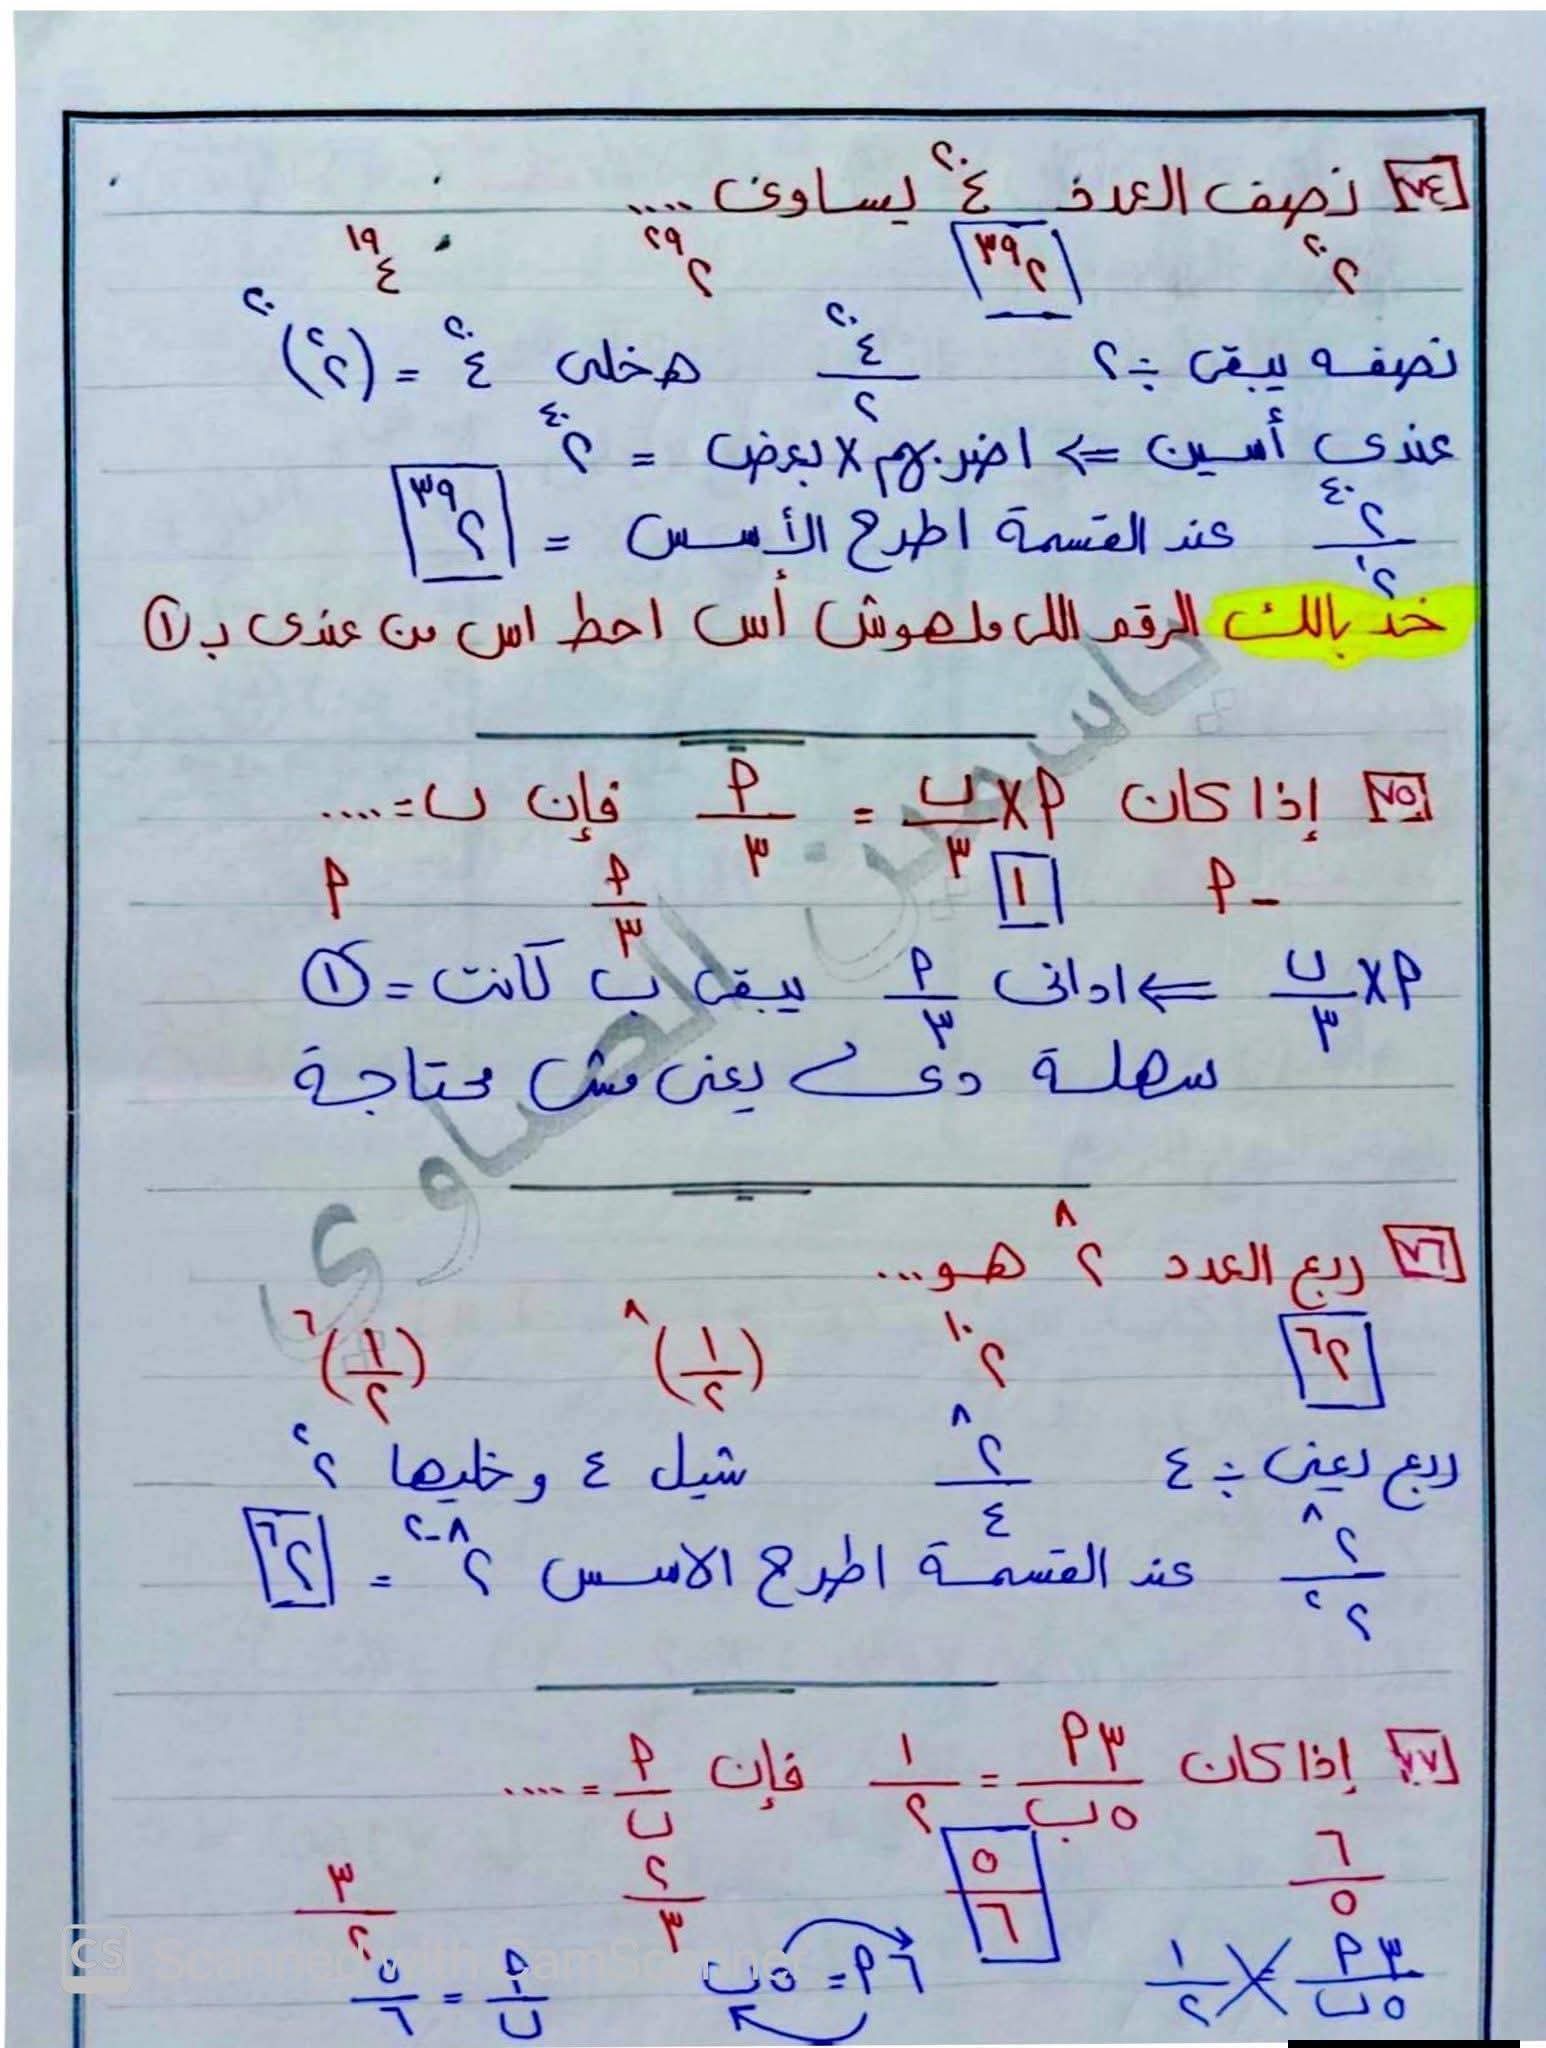 ٧٤ نصف العدد ٤^٢٠ يساوى ....
٢^٢٠ ٢^٣٩ ٢^٢٩ ٤^١٩
نصفه يبقى ÷ ٢ ٤^٢٠/٢ هخلى ٤^٢٠ = (٢^٢)^٢٠
عندى أسين ⇐ اضربهم × بعض = ٢^٤٠
٢^٤٠/٢^١ عند القسمة اطرح الأسس = ٢^٣٩
خد بالك الرقم اللى ملهوش أس احط اس من عندى بـ ١
٧٥ إذا كان ٩ × ب/٣ = ٩/٣ فإن ب = ....
-٩ ١ ٩/٣ ٩
٩ × ب/٣ ⇐ ادانى ٩/٣ يبقى ب كانت = ١
سهلة دى يعنى مش محتاجة
٧٦ ربع العدد ٢^٨ هو ...
٢^٦ ٢^١٠ (١/٢)^٨ (١/٢)^٦
ربع يعنى ÷ ٤ ٢^٨/٤ شيل ٤ وخليها ٢^٢
٢^٨/٢^٢ عند القسمة اطرح الاسس ٢^٨-٢ = ٢^٦
٧٧ إذا كان ٣٩/٥ب = ١/٢ فإن ٩/ب = ....
٦/٥ ٥/٦ ٢/٣ ٣/٢
٣٩/٥ب = ١/٢ ٦٩ = ٥ب ٩/ب = ٥/٦
ياسمين الصاوي
CS Scanned with CamScanner